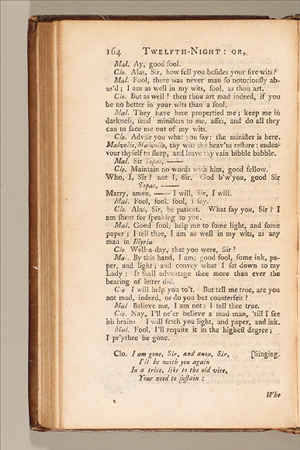 164 TWELFTH-NIGHT: OR,
Mal. Ay, good fool.
Clo. Alas, Sir, how fell you besides your five wits?
Mal. Fool, there was never man so notoriously ab-
us'd; I am as well in my wits, fool, as thou art.
Clo. But as well! then thou art mad indeed, if you
be no better in your wits than a fool.
Mal. They have here propertied me; keep me in
darkness, send ministers to me, asses, and do all they
can to face me out of my wits.
Clo. Advise you what you say: the minister is here.
Malvolio, Malvolio, thy wits the heav'ns restore: endea-
vour thyself to sleep, and leave thy vain bibble babble.
Mal. Sir Topas, ——
Clo. Maintain no words with him, good fellow.
Who, I, Sir? not I, Sir. God b'w'you, good Sir
Topas, ——
Marry, amen. —— I will, Sir, I will.
Mal. Fool, fool, fool, I say.
Clo. Alas, Sir, be patient. What say you, Sir? I
am shent for speaking to you.
Mal. Good fool, help me to some light, and some
paper; I tell thee, I am as well in my wits, as any
man in Illyria.
Clo Well-a-day, that you were, Sir!
Mal. By this hand, I am: good fool, some ink, pa-
per, and light; and convey what I set down to my
Lady: It shall advantage thee more than ever the
bearing of letter did.
Clo I will help you to't. But tell me true, are you
not mad, indeed, or do you but counterfeit?
Mal Believe me, I am not: I tell thee true.
Clo. Nay, I'll ne'er believe a mad-man, 'till I see
his brains I will fetch you light, and paper, and ink.
Mal. Fool, I'll requite it in the highest degree;
I pr'ythee be gone.
Clo. I am gone, Sir, and anon, Sir, [Singing.
I'll be with you again
In a trice, like to the old vice,
Your need to sustain:
Who